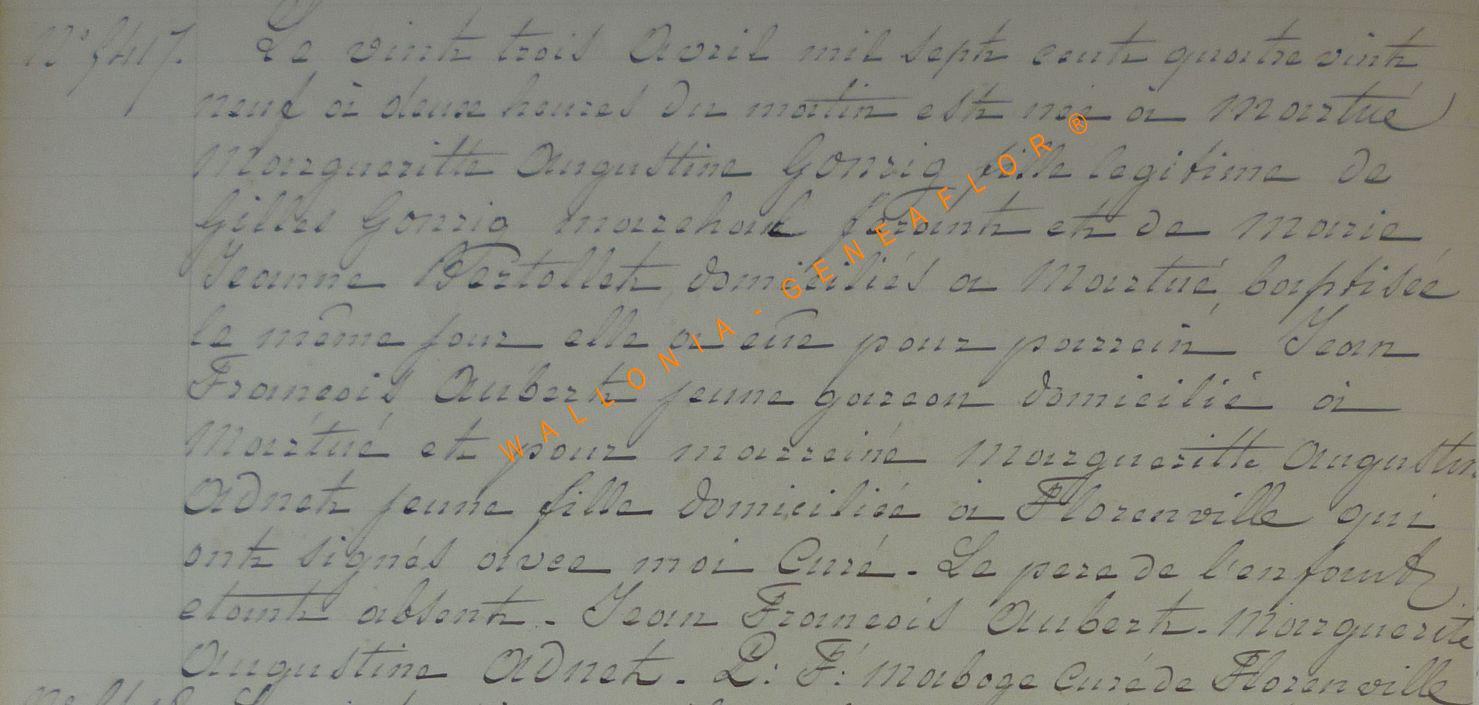 N° 9417. Le vint trois avril mil sept cent quatre vint
neuf à deux heures du matin est née à Martué
Margueritte Augustine Gonrig fille legitime de
Gilles Gonrig marechal ferant et de Marie
Jeanne Bertollet, domiciliés a Martué, baptisée
le même jour elle a eue pour parrein Jean
Francois Aubert jeune garcon domicilié à
Martué et pour marreine Margueritte Augustin
Adnet jeune fille domiciliée à Florenville qui
ont signés avec moi Curé. Le pere de l'enfant
etant absent. Jean Francois Aubert. Marguerite
Augustine Adnet. P: F: Maboge Curé de Florenville
WALLONIA - GENEAFLOR ®